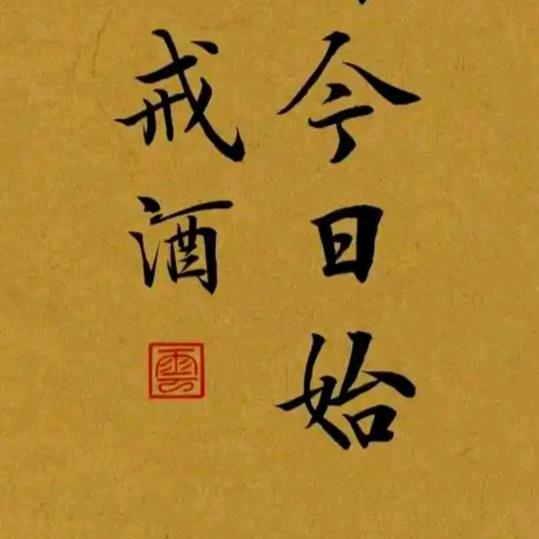 今日始
戒酒
雲